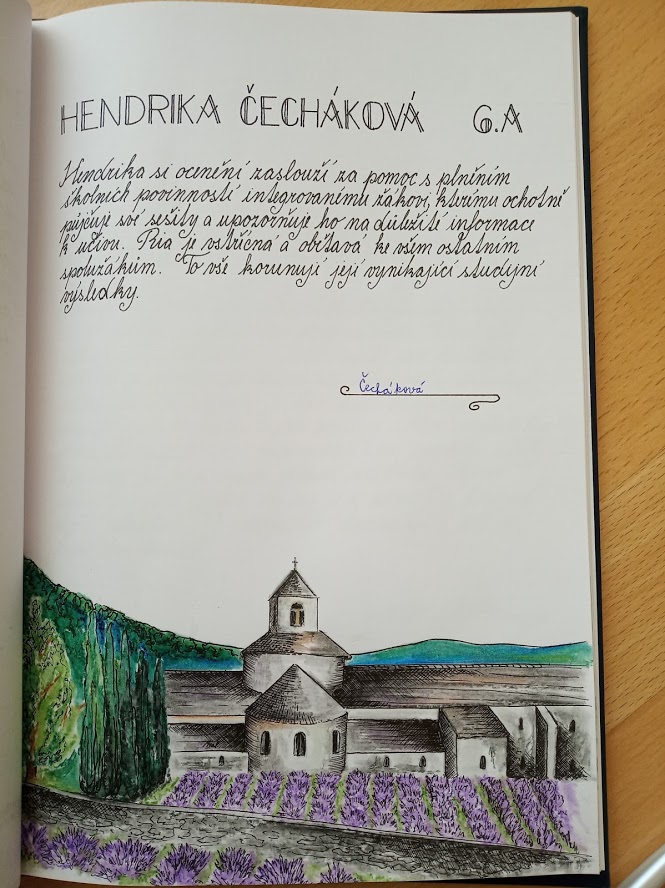 HENDRIKA ČECHÁKOVÁ 6.A
Hendrika si ocenění zaslouží za pomoc s plněním
školních povinností integrovanému žákovi, kterému ochotně
půjčuje své sešity a upozorňuje ho na důležité informace
k učivu. Ria je vstřícná a obětavá ke všem ostatním
spolužákům. To vše korunují její vynikající studijní
výsledky.
Čecháková